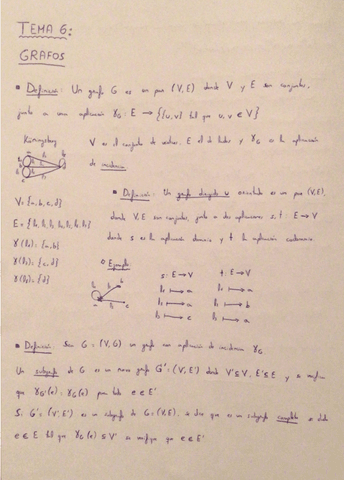 TEMA 6:
GRAFOS
• Definición: Un grafo G es un par (V, E) donde V y E son conjuntos,
junto a una aplicación γG : E → {{u,v} tal que u, v ∈ V}
Königsberg
V es el conjunto de vértices, E el de lados y γG es la aplicación
de incidencia
• Definición: Un grafo dirigido u orientado es un par (V,E),
V = {a, b, c, d}
donde V, E son conjuntos, junto a dos aplicaciones s, t : E → V
donde s es la aplicación dominio y t la aplicación codominio.
γ( ) = {a, b}
γ( ) = {c, d}
γ( ) = {d}
Ejemplo:
s : E → V t : E → V
• Definición: Sea G = (V, G) un grafo con aplicación de incidencia γG
Un subgrafo de G es un nuevo grafo G' = (V', E') donde V' ⊆ V, E' ⊆ E y se verifica
que γG'(e) = γG(e) para todo e ∈ E'
Si G' = (V', E') es un subgrafo de G = (V, E), se dice que es un subgrafo completo si dado
e ∈ E tal que γG(e) ⊆ V' se verifica que e ∈ E'